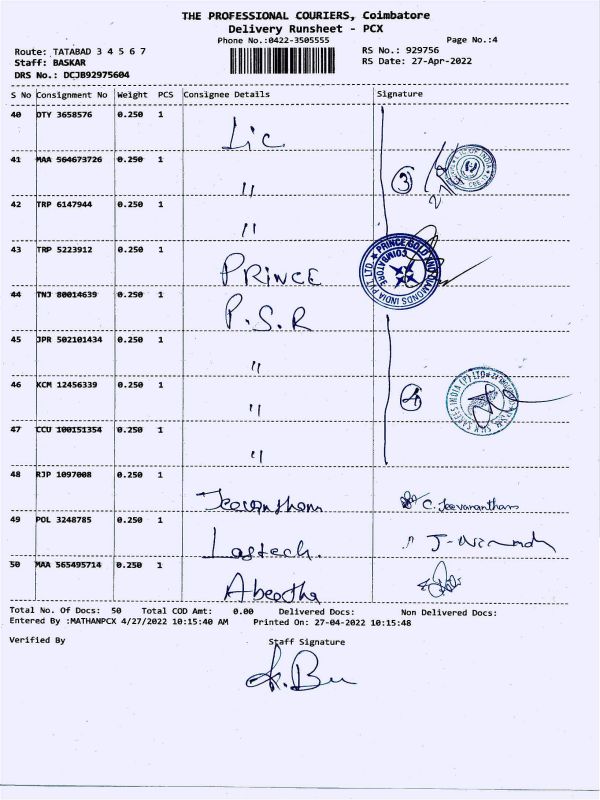 THE PROFESSIONAL COURIERS, Coimbatore
Delivery Runsheet - PCX
Phone No.:0422-3505555
Page No.:4
Route: TATABAD 3 4 5 6 7
RS No.: 929756
Staff: BASKAR
RS Date: 27-Apr-2022
DRS No.: DCJB92975604
S No Consignment No Weight PCS Consignee Details Signature
40 DTY 3658576 0.250 1 Lic
41 MAA 564673726 0.250 1 " 3
42 TRP 6147944 0.250 1 "
43 TRP 5223912 0.250 1 PRINCE
PRINCE GOLD AND DIAMONDS INDIA PVT LTD. COIMBATORE
44 TNJ 80014639 0.250 1 P.S.R
45 JPR 502101434 0.250 1 "
46 KCM 12456339 0.250 1 " 4
47 CCU 100151354 0.250 1 "
48 RJP 1097008 0.250 1 Jeevanantham C. Jeevanantham
49 POL 3248785 0.250 1 Lastech.
50 MAA 565495714 0.250 1
Total No. Of Docs: 50 Total COD Amt: 0.00 Delivered Docs: Non Delivered Docs:
Entered By :MATHANPCX 4/27/2022 10:15:40 AM Printed On: 27-04-2022 10:15:48
Verified By Staff Signature